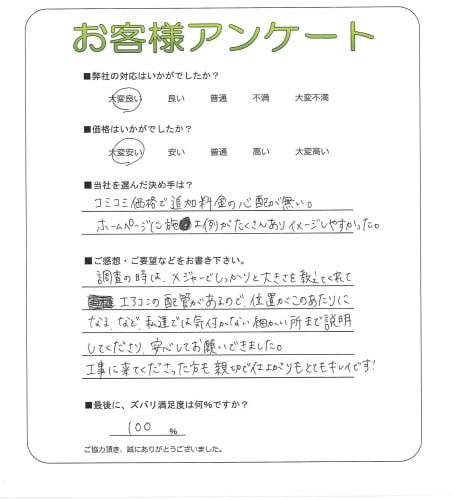 お客様アンケート
■弊社の対応はいかがでしたか?
大変良い 良い 普通 不満 大変不満
■価格はいかがでしたか?
大変安い 安い 普通 高い 大変高い
■当社を選んだ決め手は?
コミコミ価格で追加料金の心配が無い。
ホームページに施工例がたくさんありイメージしやすかった。
■ご感想・ご要望などをお書き下さい。
調査の時は、メジャーでしっかりと大きさを教えてくれて
エアコンの配管があるので、位置がこのあたりに
なる、など、私達では気付かない細かい所まで説明
してくださり、安心してお願いできました。
工事に来てくださった方も親切で仕上がりもとてもキレイです!
■最後に、ズバリ満足度は何%ですか?
100 %
ご協力頂き、誠にありがとうございました。